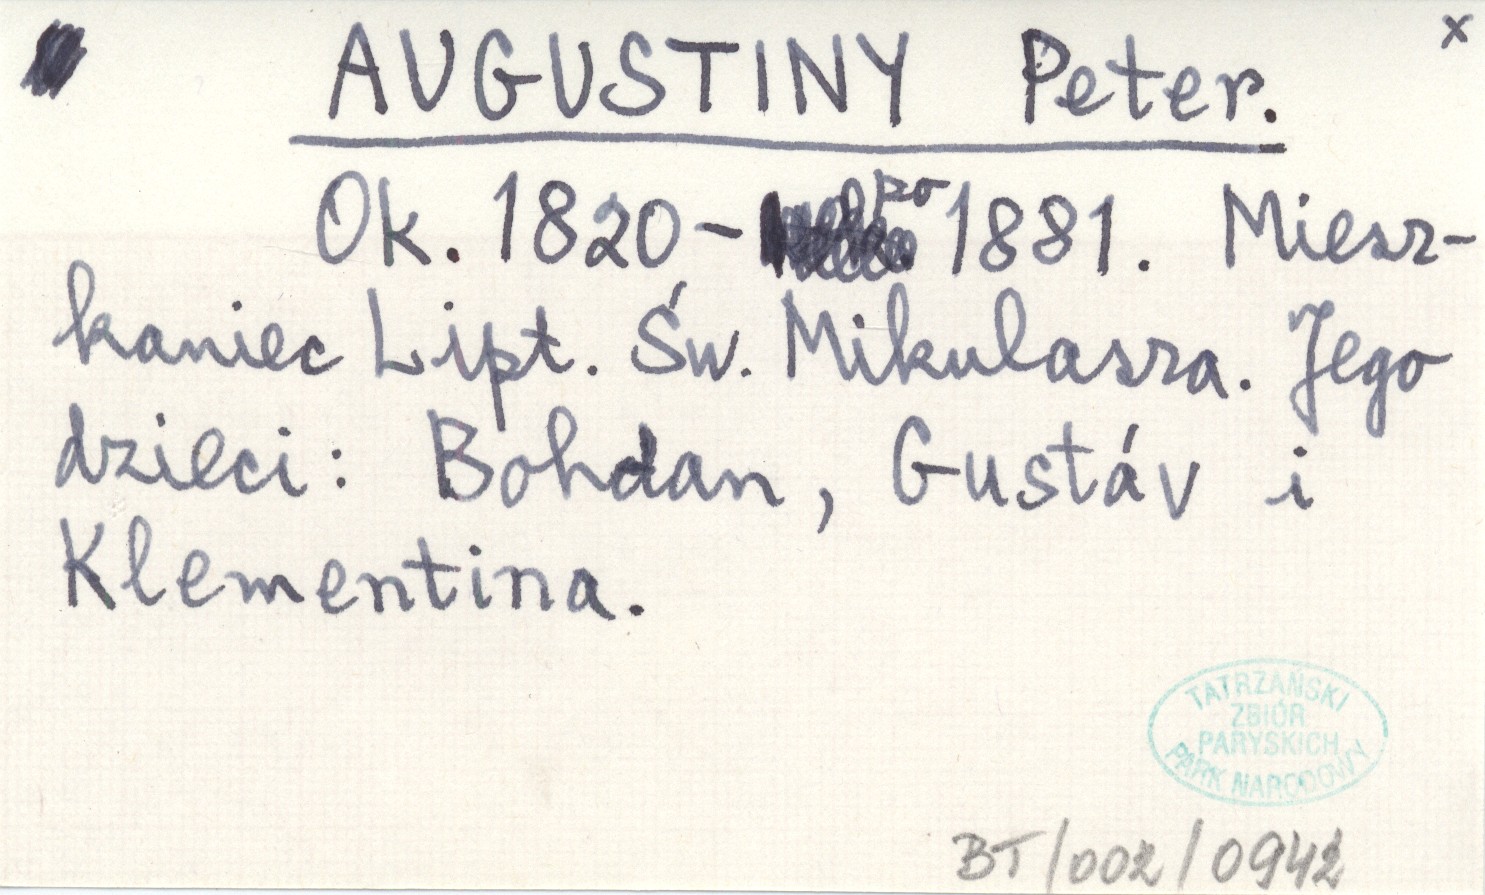 x
AUGUSTINY Peter.
Ok. 1820 - po 1881. Miesz-
kaniec Lipt. Św. Mikulasza. Jego
dzieci: Bohdan, Gustáv i
Klementina.
TATRZAŃSKI
ZBIÓR
PARYSKICH
PARK NARODOWY
BT/002/0942